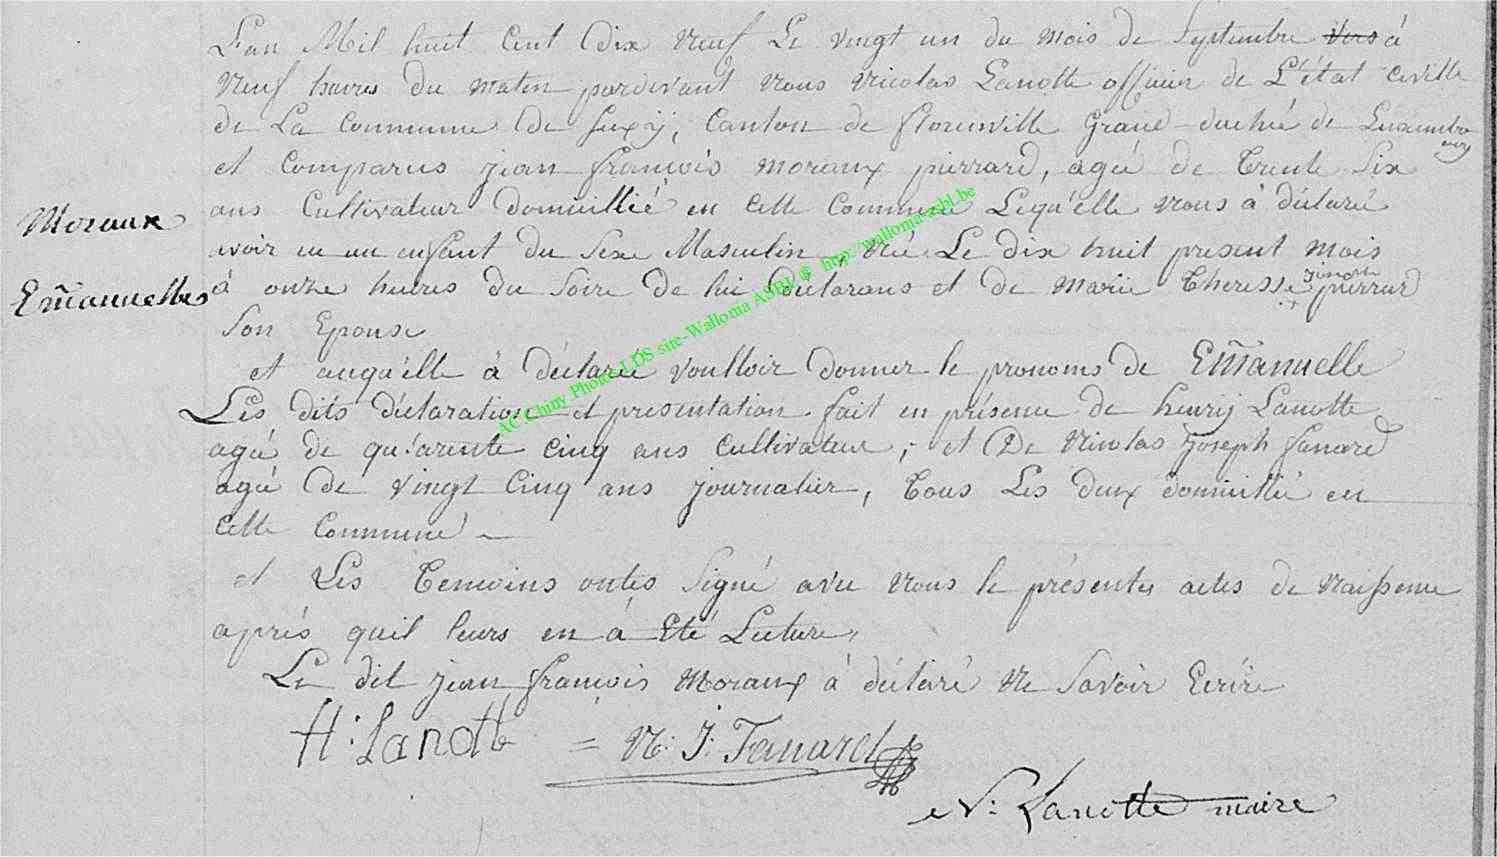 L'an Mil huit Cent Dix Neuf Le vingt un du mois de Septembre vers à
Neuf heures du matin pardevant nous nicolas Lanotte officier de L'état civille
de La Commune de Suxÿ, Canton de florenville Grand-duché de Luxembourg
et Comparus jean françois moraux pierrard, agé de Trente Six
Moraux
ans Cultivateur domicillié en Cette Commune Lequ'elle nous à déclaré
avoir eu un enfant du Sexe Masculin, Né Le dix huit present mois
Emanuelles
à onze heures du Soire de lui déclarans et de marie Theresse pierrard
Son Epouse
et auqu'elle à déclaré voulloir donner le pronoms de Emanuelle
Les dits déclaration et presentation fait en présence de henrÿ Lanotte
agé de qu'arente cinq ans Cultivateur, et De Nicolas Joseph fanard
agé de vingt Cinq ans journalier, Tous Les deux domicillié en
Cette Commune
et Les Temoins ontes Signé avec nous le présentes actes de naissence
aprés quil leurs en à Eté Lecture,,
Le dit jean françois Moraux à déclaré ne Savoir Ecrire
H: Lanotte = N: J: Fanard
N: Lanotte maire
AC Chiny Photos LDS site-Wallonia ASBL @ http://wallonia-asbl.be